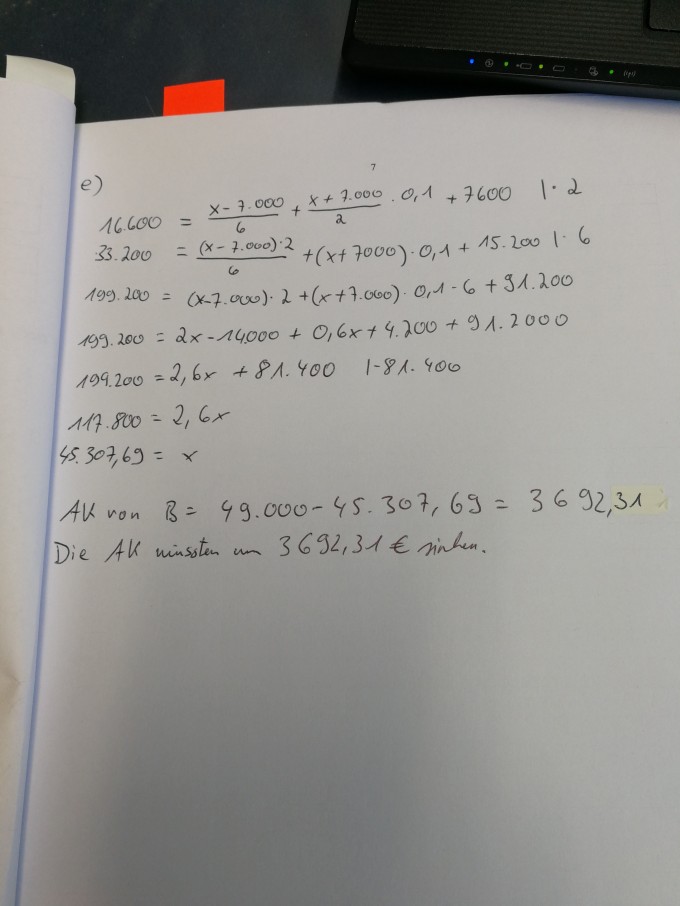 7
e)
16.600 = \frac{x - 7.000}{6} + \frac{x + 7.000}{2} · 0,1 + 7600 | · 2
33.200 = \frac{(x - 7.000) · 2}{6} + (x + 7000) · 0,1 + 15.200 | · 6
199.200 = (x - 7.000) · 2 + (x + 7.000) · 0,1 · 6 + 91.200
199.200 = 2x - 14.000 + 0,6x + 4.200 + 91.2000
199.200 = 2,6x + 81.400 | -81.400
117.800 = 2,6x
45.307,69 = x
AK von B = 49.000 - 45.307,69 = 3692,31
Die AK müssten um 3692,31 € sinken.